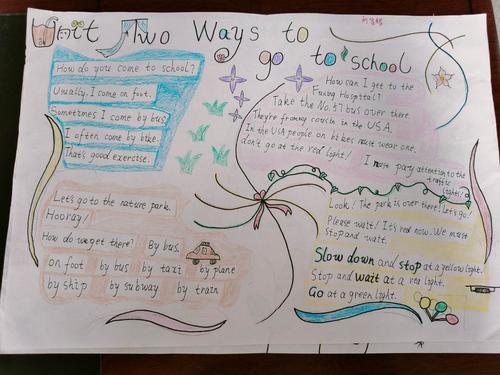 Unit Two Ways to
go to school
How do you come to school?
Usually, I come on foot.
Sometimes I come by bus.
I often come by bike.
That's good exercise.
How can I get to the
Fuxing Hospital?
Take the No.57 bus over there.
They're from my cousin in the U.S.A.
In the USA people on bikes must wear one.
don't go at the red light!
I must pay attention to the
traffic
lights!
Let's go to the nature park.
Hooray!
How do we get there? By bus.
on foot by bus by taxi by plane
by ship by subway by train
Look! The park is over there! Let's go!
Please wait! It's red now. We must
stop and wait.
Slow down and stop at a yellow light.
Stop and wait at a red light.
Go at a green light.